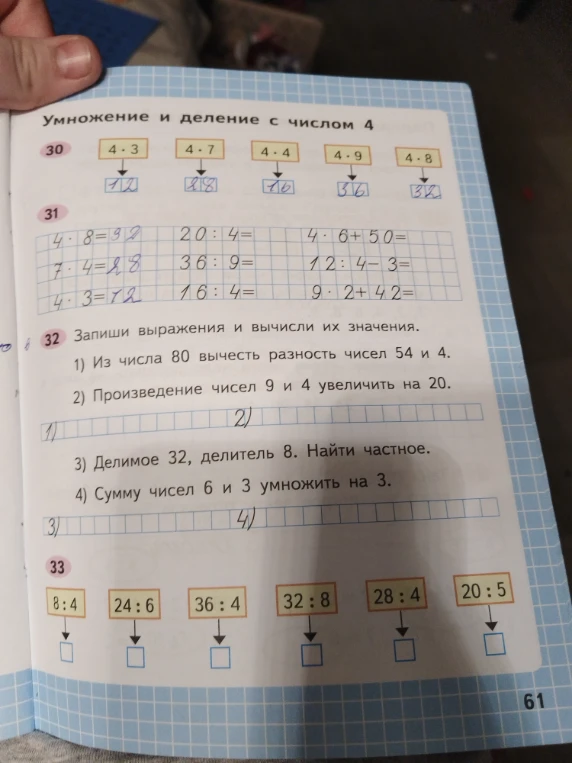 Умножение и деление с числом 4
30 4 · 3 4 · 7 4 · 4 4 · 9 4 · 8
12 28 16 36 32
31
4 · 8=32 20 : 4= 4 · 6+50=
7 · 4=28 36 : 9= 12 : 4-3=
4 · 3=12 16 : 4= 9 · 2+42=
32 Запиши выражения и вычисли их значения.
1) Из числа 80 вычесть разность чисел 54 и 4.
2) Произведение чисел 9 и 4 увеличить на 20.
1) 2)
3) Делимое 32, делитель 8. Найти частное.
4) Сумму чисел 6 и 3 умножить на 3.
3) 4)
33
8 : 4 24 : 6 36 : 4 32 : 8 28 : 4 20 : 5
61